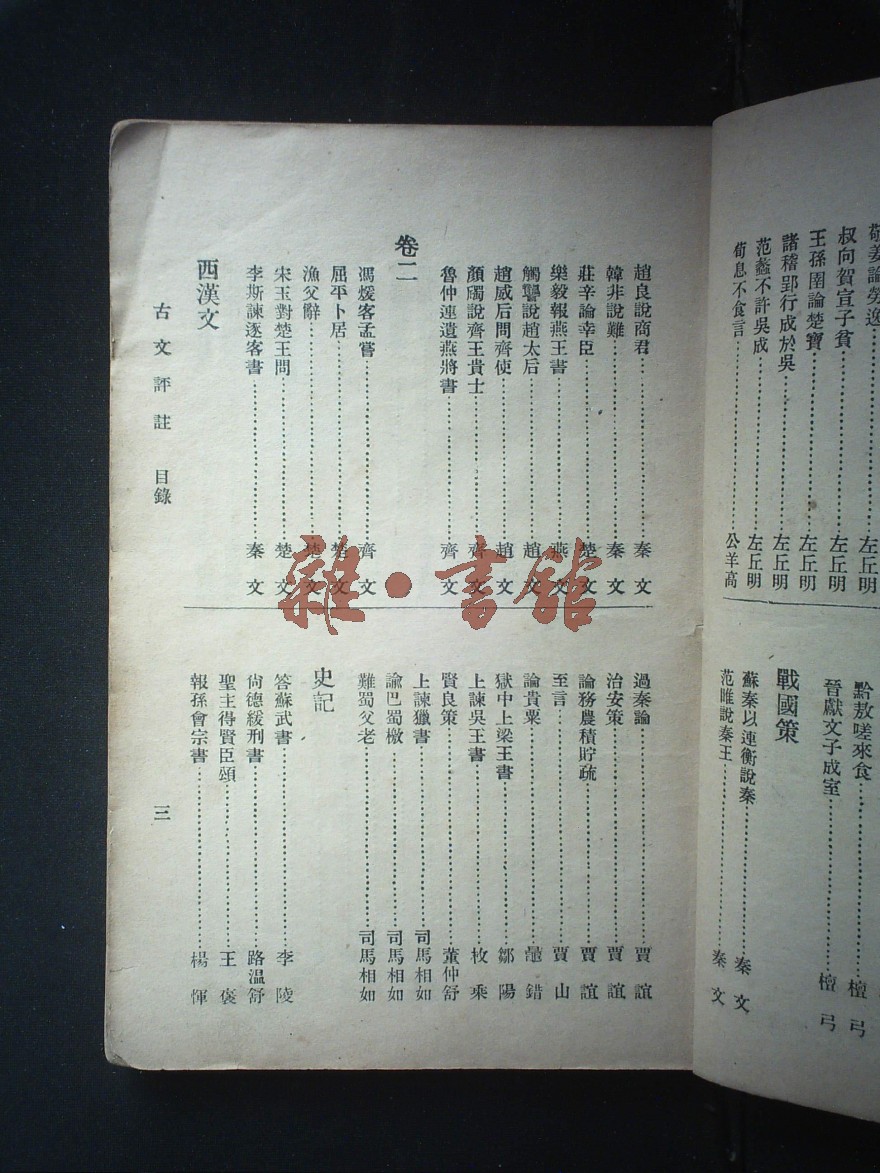 敬姜論勞逸……左丘明
叔向賀宣子貧……左丘明
王孫圉論楚寶……左丘明
諸稽郢行成於吳……左丘明
范蠡不許吳成……左丘明
荀息不食言……公羊高
黔敖嗟來食……檀弓
晉獻文子成室……檀弓
戰國策
蘇秦以連衡說秦……秦文
范雎說秦王……秦文
趙良說商君……秦文
韓非說難……秦文
莊辛論幸臣……楚文
樂毅報燕王書……燕文
觸讋說趙太后……趙文
趙威后問齊使……趙文
顏斶說齊王貴士……齊文
魯仲連遺燕將書……齊文
卷二
馮煖客孟嘗……齊文
屈平卜居……楚文
漁父辭……楚文
宋玉對楚王問……楚文
李斯諫逐客書……秦文
西漢文
過秦論……賈誼
治安策……賈誼
論務農積貯疏……賈誼
至言……賈山
論貴粟……鼂錯
獄中上梁王書……鄒陽
上諫吳王書……枚乘
賢良策……董仲舒
上諫獵書……司馬相如
諭巴蜀檄……司馬相如
難蜀父老……司馬相如
史記
答蘇武書……李陵
尚德緩刑書……路溫舒
聖主得賢臣頌……王褒
報孫會宗書……楊惲
古文評註 目錄 三
雜·書館